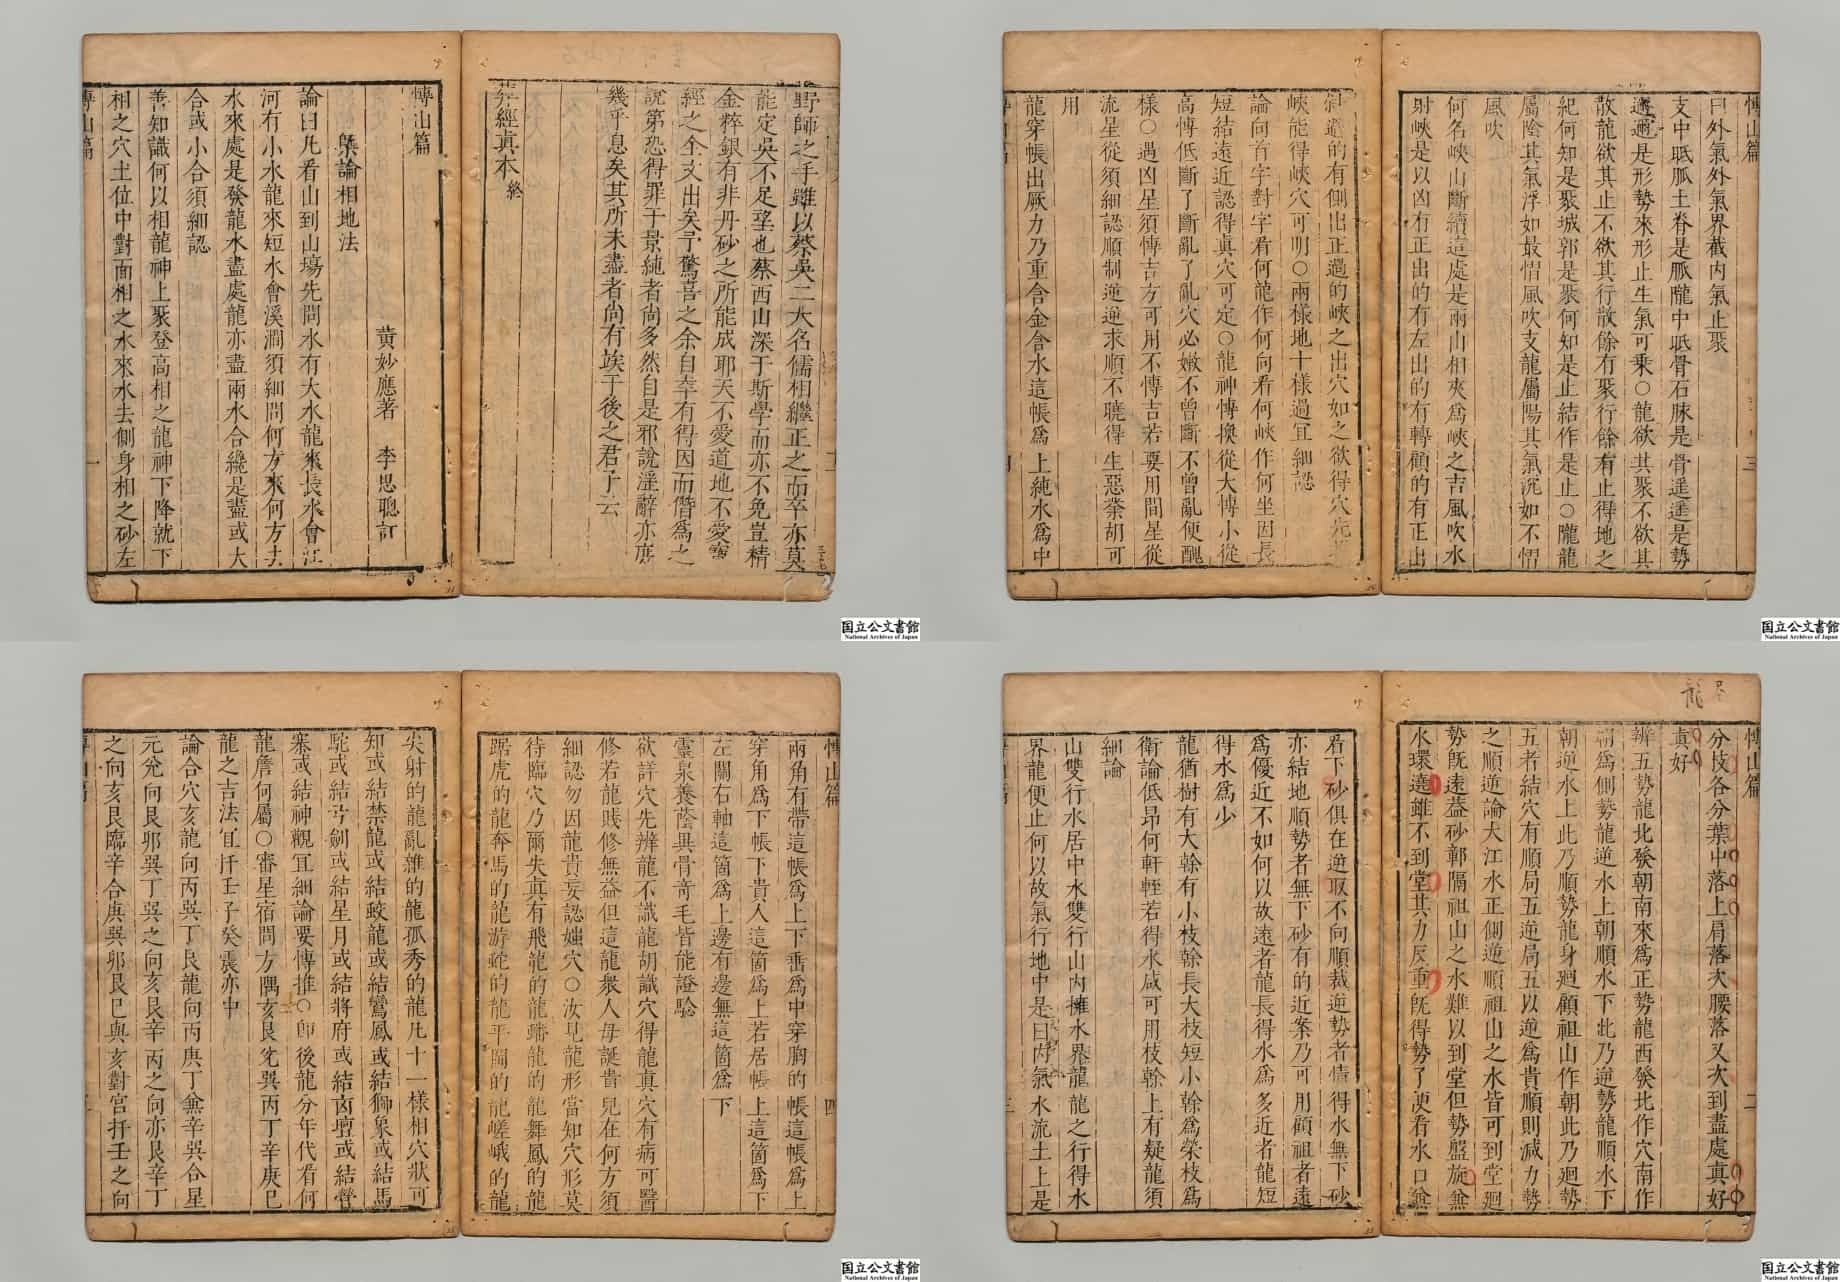 野師之手雖以蔡吳二大名儒相繼正之而卒亦莫
能定吳不足望也蔡西山深于斯學而亦不免豈精
金粹銀有非丹砂之所能成耶天不愛道地不愛寶
經之全文出矣予驚喜之余自幸有得因而僭爲之
說第恐得罪于景純者尚多然自是邪說淫辭亦庶
幾乎息矣其所未盡者尚有竢于後之君子云
葬經真本終
慱山篇
黃妙應著 李思聰訂
槩論相地法
論曰凡看山到山塲先問水有大水龍來長水會江
河有小水龍來短水會溪澗須細問何方來何方去
水來處是發龍水盡處龍亦盡兩水合纔是盡或大
合或小合須細認
善知識何以相龍神上聚登高相之龍神下降就下
相之穴土位中對面相之水來水去側身相之砂左
慱山篇
一
慱山篇
三
曰外氣外氣界截內氣止聚
支中眡脈土脊是脈隴中眡骨石脉是骨逶逶是勢
邐邐是形勢來形止生氣可乗〇龍欲其聚不欲其
散龍欲其止不欲其行散餘有聚行餘有止得地之
紀何知是聚城郭是聚何知是止結作是止〇隴龍
屬陰其氣浮如最惜風吹支龍屬陽其氣沉如不惜
風吹
何名峽山斷續這處是兩山相夾爲峽之吉風吹水
射峽是以凶有正出的有左出的有轉顧的有正出
斜過的有側出正過的峽之出穴如之欲得穴先
峽能得峽穴可明〇兩樣地十樣過宜細認
論向首字對字看何龍作何向看何峽作何坐因長
短結遠近認得真穴可定〇龍神慱換從大慱小從
高慱低斷了斷亂了亂穴必嫩不曾斷不曾亂便醜
樣〇遇凶星須慱吉方可用不慱吉若要用間星從
流星從須細認順制逆逆求順不曉得生惡業胡可
用
龍穿帳出厥力乃重含金含水這帳爲上純水爲中
慱山篇
四
兩角有帶這帳爲上下垂爲中穿胸的帳這帳爲上
穿角爲下帳下貴人這箇爲上若居帳上這箇爲下
左關右軸這箇爲上邊有邊無這箇爲下
靈泉養蔭異骨奇毛皆能證驗
欲詳穴先辨龍不識龍胡識穴得龍真穴有病可醫
修若龍賤修無益但這龍衆人毋誕貴兒在何方須
細認勿因龍貴妄認媸穴〇汝見龍形當知穴形莫
待臨穴乃爾失真有飛龍的龍蟠龍的龍舞鳳的龍
踞虎的龍奔馬的龍游蛇的龍平闊的龍嵯峨的龍
尖射的龍亂雜的龍孤秀的龍凡十一樣相穴狀可
知或結禁龍或結蛟龍或結鸞鳳或結獅象或結馬
駝或結弓劍或結星月或結將府或結台壇或結營
寨或結神觀宜細論要慱推〇師後龍分年代看何
龍詹何屬〇審星宿問方隅亥艮兊巽丙丁辛庚巳
龍之吉法宜扦壬子癸震亦中
論合穴亥龍向丙巽丁艮龍向丙庚丁兊辛巽合星
元兊向艮卯巽丁巽之向亥艮辛丙之向亦艮辛丁
之向亥艮臨辛合庚巽卯艮巳與亥對宮扦壬之向
慱山篇
二
分枝各分葉中落上肩落次腰落又次到盡處真好
真好
辨五勢龍北發朝南來爲正勢龍西發北作穴南作
朝爲側勢龍逆水上朝順水下此乃逆勢龍順水下
朝逆水上此乃順勢龍身廻顧祖山作朝此乃廻勢
五者結穴有順局五逆局五以逆爲貴順則減力勢
之順逆論大江水正側逆順祖山之水皆可到堂廻
勢旣遠葢砂郭隔祖山之水難以到堂但勢盤旋兼
水環遶雖不到堂其力反重旣得勢了便看水口兼
看下砂俱在逆取不向順裁逆勢者情得水無下砂
亦結地順勢者無下砂有的近案乃可用顧祖者遠
爲優近不如何以故遠者龍長得水爲多近者龍短
得水爲少
龍猶樹有大榦有小枝榦長大枝短小榦爲榮枝爲
衛論低昂何軒輊若得水咸可用枝榦上有疑龍須
細論
山雙行水居中水雙行山內擁水界龍龍之行得水
界龍便止何以故氣行地中是曰內氣水流土上是